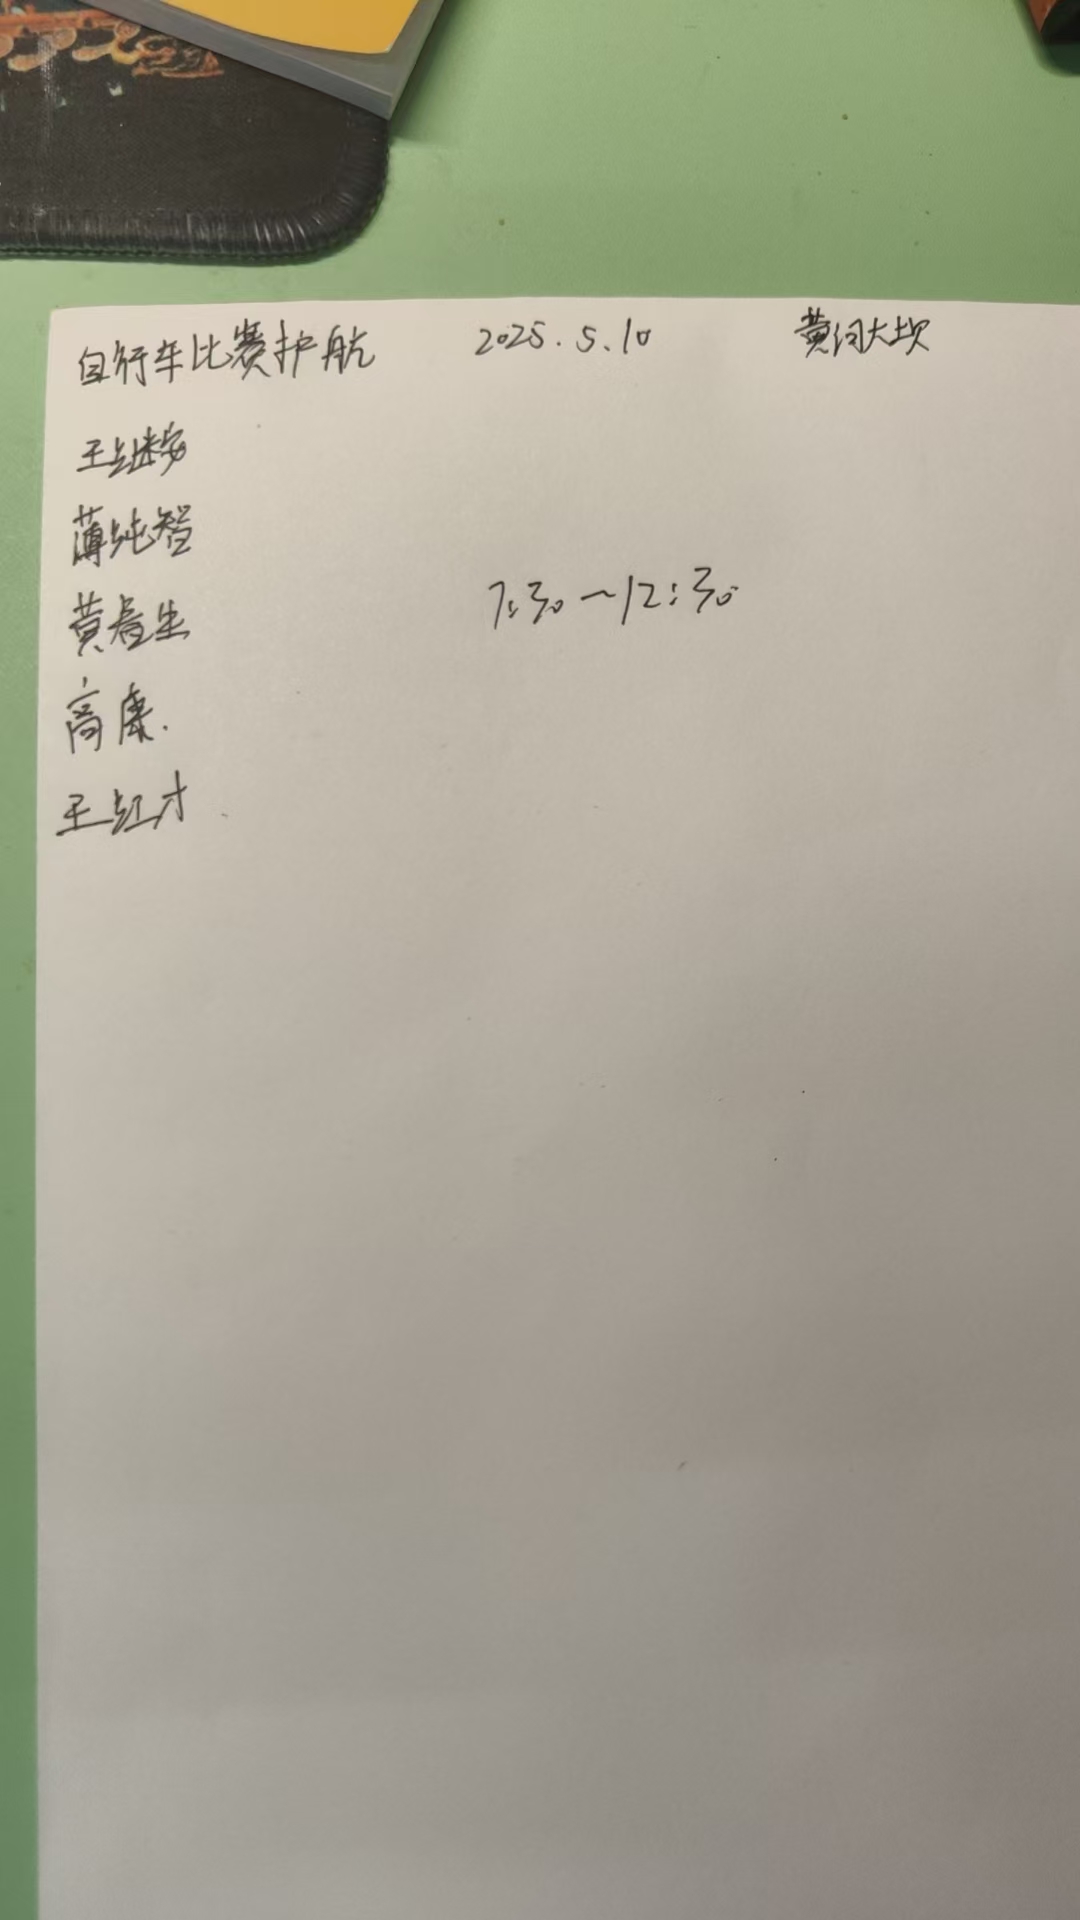 自行车比赛护航 2025.5.10 黄河大坝
王继安
薄纯智
7:30~12:30
黄春生
高康.
王红才